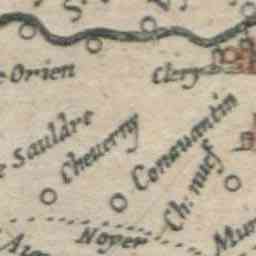 Orien
Clery
Sauldre
Cheuerny
Conauantin
Ch: neuf
Noyer